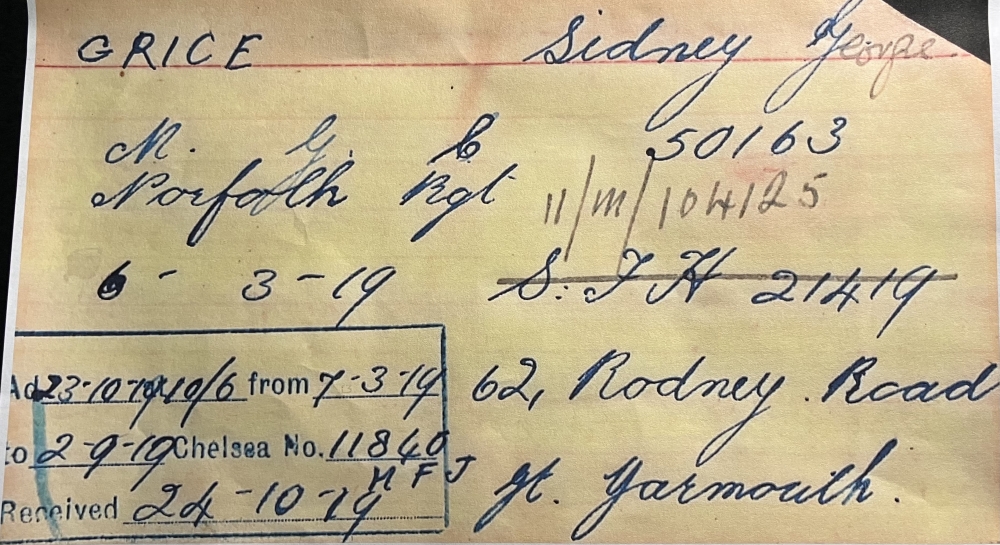 GRICE Sidney George
M. G. C 50163
Norfolk Rgt 11/M/104125
6 - 3 - 19 S: I H 21419
Ad 23-10-19 10/6 from 7-3-19 62, Rodney Road
to 2-9-19 Chelsea No. 11840
M F J
Received 24-10-19 Gt. Yarmouth.